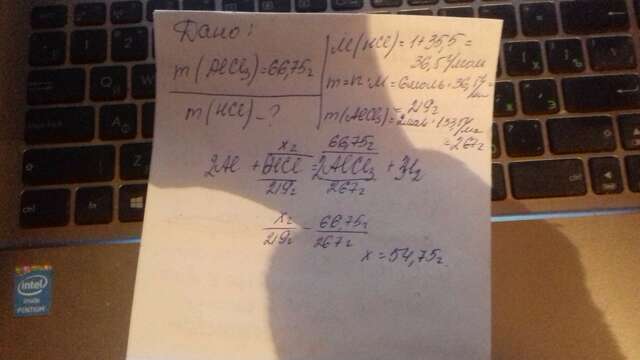 Дано:
m(AlCl₃)=66,75г
m(HCl)-?
M(HCl)=1+35,5=
36,5г/моль
m=n·M=6моль·36,5г/
моль
=219г
m(AlCl₃)=2моль·133,5г/моль
=267г
xг 66,75г
2Al + 6HCl = 2AlCl₃ + 3H₂
219г 267г
xг = 66,75г
219г 267г
x=54,75г
intel
inside
PENTIUM